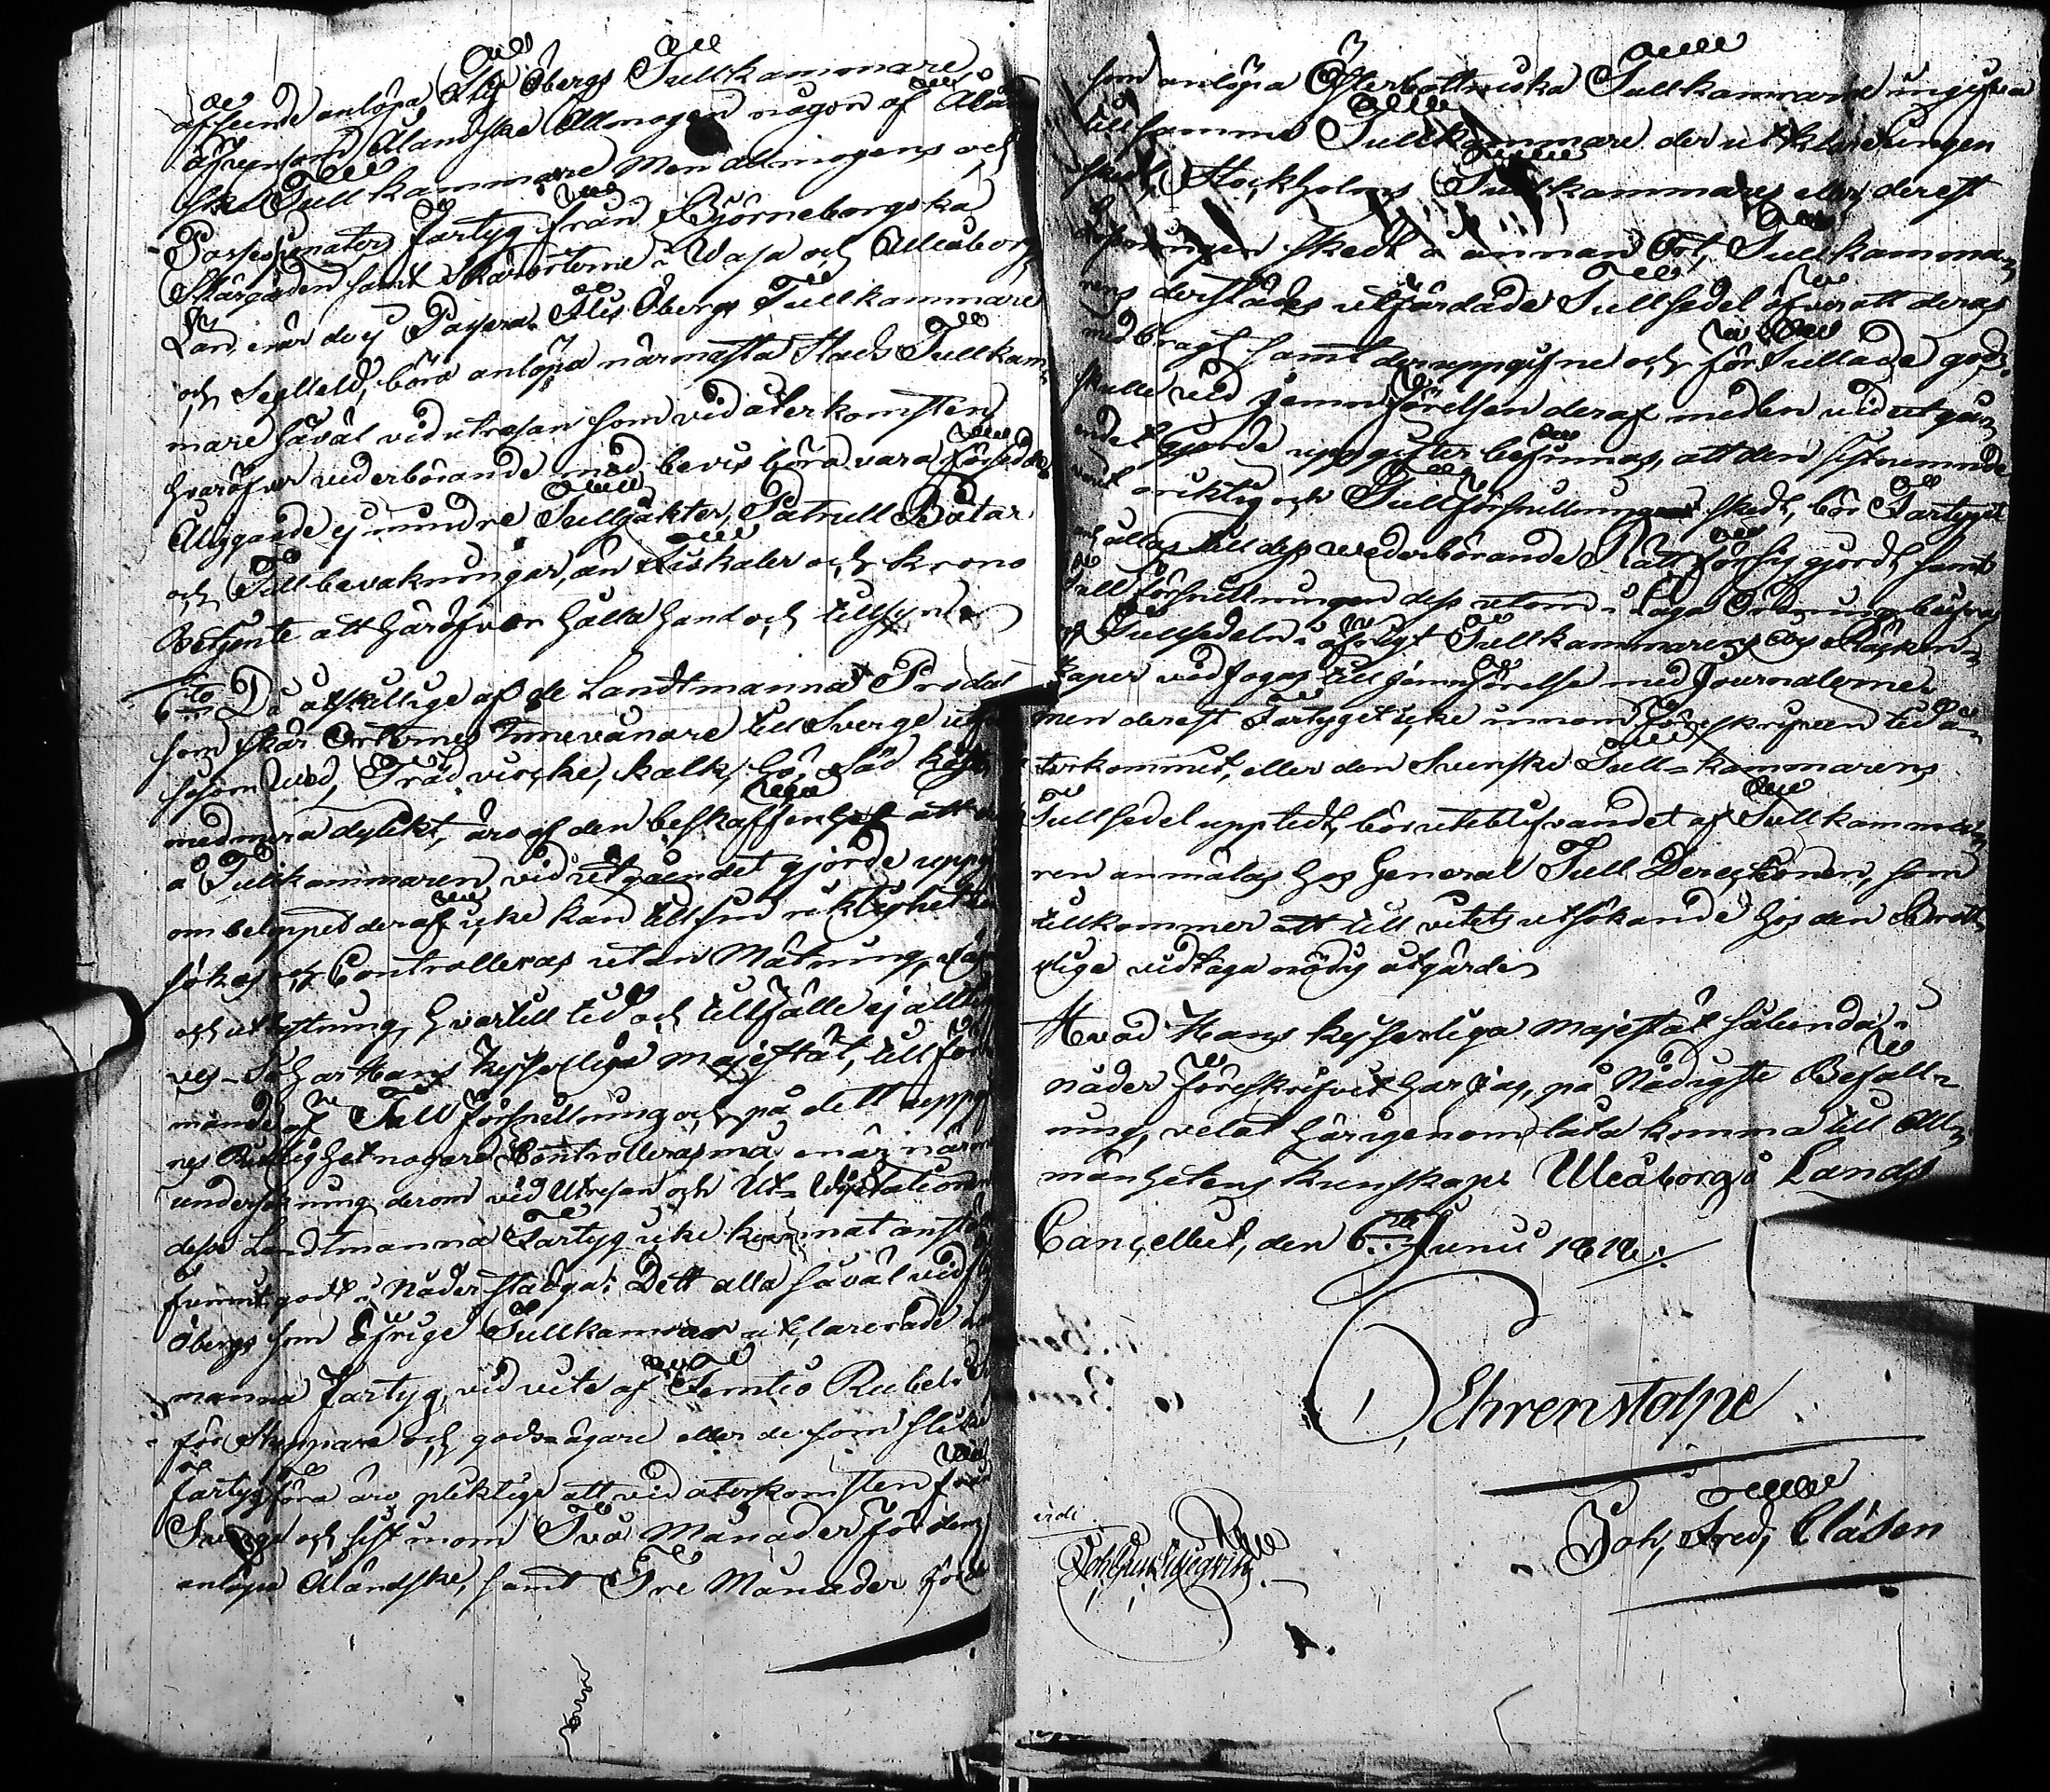 afseende anlöpa Stig Öbergs Tullkammare
äfvensom Åländske Allmogen någon af Ålän
ske Tullkammare Men allmogens och
Possessionaters Fartyg från Björneborgska
Skärgården samt Skärorterne i Wasa och Uleåborgs
Län, när de ej Passera Stig Öbergs Tullkammare
och Segelled, böra anlöpa närmasta Stads Tullkam-
mare såväl vid utresan som vid återkomsten
hvaröfver vederbörande med bevis böra vara försedde
Åliggande ej mindre Tulljakter, Patrull Båtar
och Tullbevakningar, än Fiskaler och Krono
Betjente att häröfver hålla hand och tillsyn
6to Då åtskillige af de Landtmanna Produk
som skär Orternes Innevånare till Sverge ut
såsom Wed, Trädvircke, kalk, hö, Säd
med mera dylikt, äro af den beskaffenhet att
å Tullkammaren vid utgåendet gjorde uppg
om beloppet deraf icke kan till sin riktighet
sökas och Controlleras utan Mätning, väg
och utlastning, hvartill tid och tillfälle ej allti
ves - Så har Hans Kejserliga Majestät, till före
mande af Tull försnillning och på dett uppg
nes Riktighet nogare Controlleras må, enär närm
undersökning derom vid Utresan och Ut-
desse Landtmanna Fartyg icke kunnat anstäl
funnit godt i Nåder stadga: Dett alla såväl vid
Öbergs som öfrige Tullkamrar utclarerade
manna Fartyg, vid vite af Femtio Rubel
för Skeppare och godsägare eller de som slike
fartyg föra äro pliktige att vid återkomsten från
Sverge och sist inom Två Månader för dem
anlöpa Åländske, samt Tre Månader för
som anlöpa Österbottniska Tullkamrarne ingifva
till samma Tullkammare der utklareringen
skedt, Stockholms Tullkammares eller derest
skedt å annan Ort, Tullkamma-
rens derstädes utfärdade Tullsedel öfver att deras
medbragt samt der uppgifne och förtullade gods.
Skulle vid jemnförelsen deraf med den vid utgå
endet gjorde uppgifter befinnas, att den sistnemnde
varit oriktig och Tullförsnillningen skedt, bör Fartyget
till dess wederbörande Rätt för sig gjordt, samt
tullförsnillningen dess utom i laga Ordning beifras
Tullsedeln i öfrigt Tullkammarens Räken-
skaper vidfogas till jemnförelse med Journalerne.
men derest Fartyget icke innom föreskrifven tid å-
terkommit, eller den Svenske Tull-kammarens
Tullsedel upptedt, bör uteblifvandet af Tullkamma-
ren anmälas hos General Tull Direcktionen, som
tillkommer att till vitets utsökande hos den Brott-
slige vidtaga nödig åtgärd
Hvad Hans Kejserliga Majestät sålunda i
nåder föreskrifvet har jag, på Nådigste Befall-
ning, velat härigenom låta komma till All-
mänhetens kunskap. Uleåborgs Lands
Cancelliet, den 6te Junii 1818.
Ehrenstolpe
Joh, Fred, Clásen
vidi